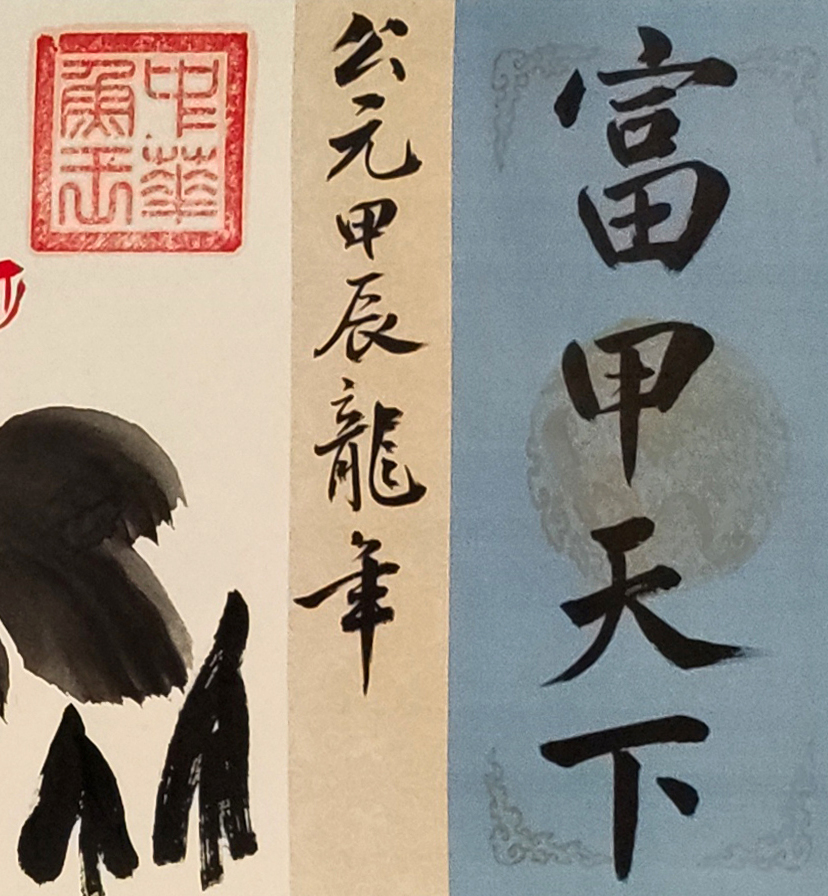 富甲天下
公元甲辰龍年
中華